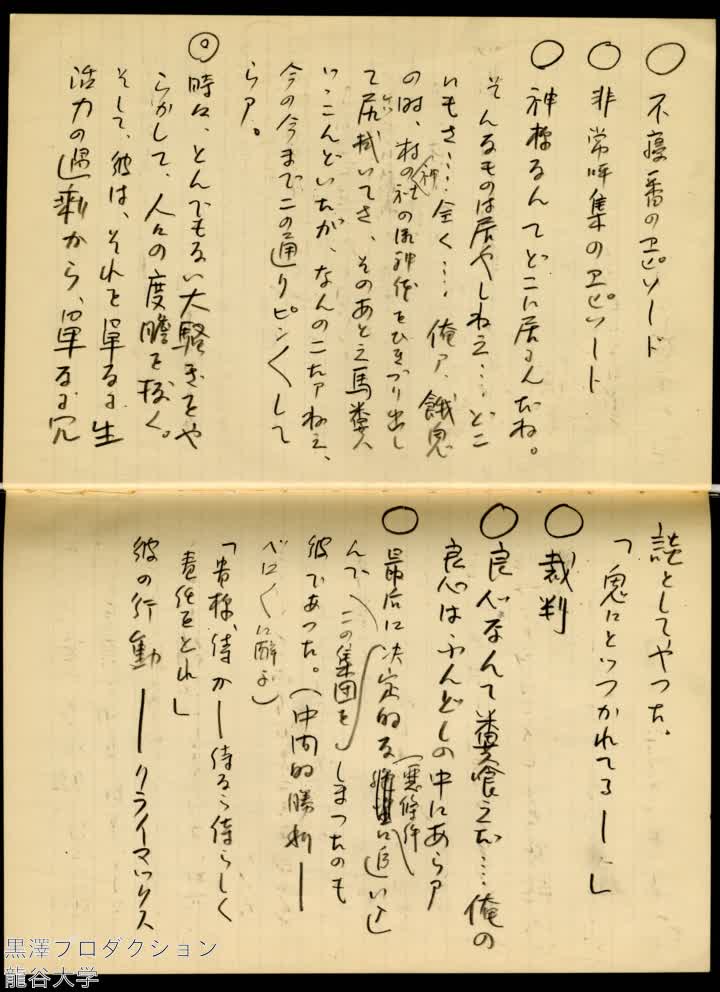 ○ 不寝番のエピソード
○ 非常呼集のエピソート
○ 神様なんてどこに居るんだね。
そんなものは居やしねえ……どこ
いもさ……全く……俺ァ、餓鬼
の時、村の神社の御神体をひきづり出し
て尻拭いてさ、そのあと馬糞
つっこんどいたが、なんのこたァねえ、
今の今までこの通りピン〱して
らァ。
◎ 時々、とんでもない大騒ぎをや
らかして、人々の度胆を抜く。
そして、彼は、それを単なる生
活力の過剰から、単なる冗
談としてやつた。
「鬼にとっつかれてるー」
○ 裁判
○ 良心なんて糞喰えだ……俺の
良心はふんどしの中にあらァ
○ 最后に決定的な悪條件に追いこ
んで、この集団を しまつたのも
彼であつた。(中内的勝利ー
べに〱に酔う)
「貴様、侍かー侍なら侍らしく
責任をとれ」
彼の行動 ー クライマックス
黒澤プロダクション
龍谷大学